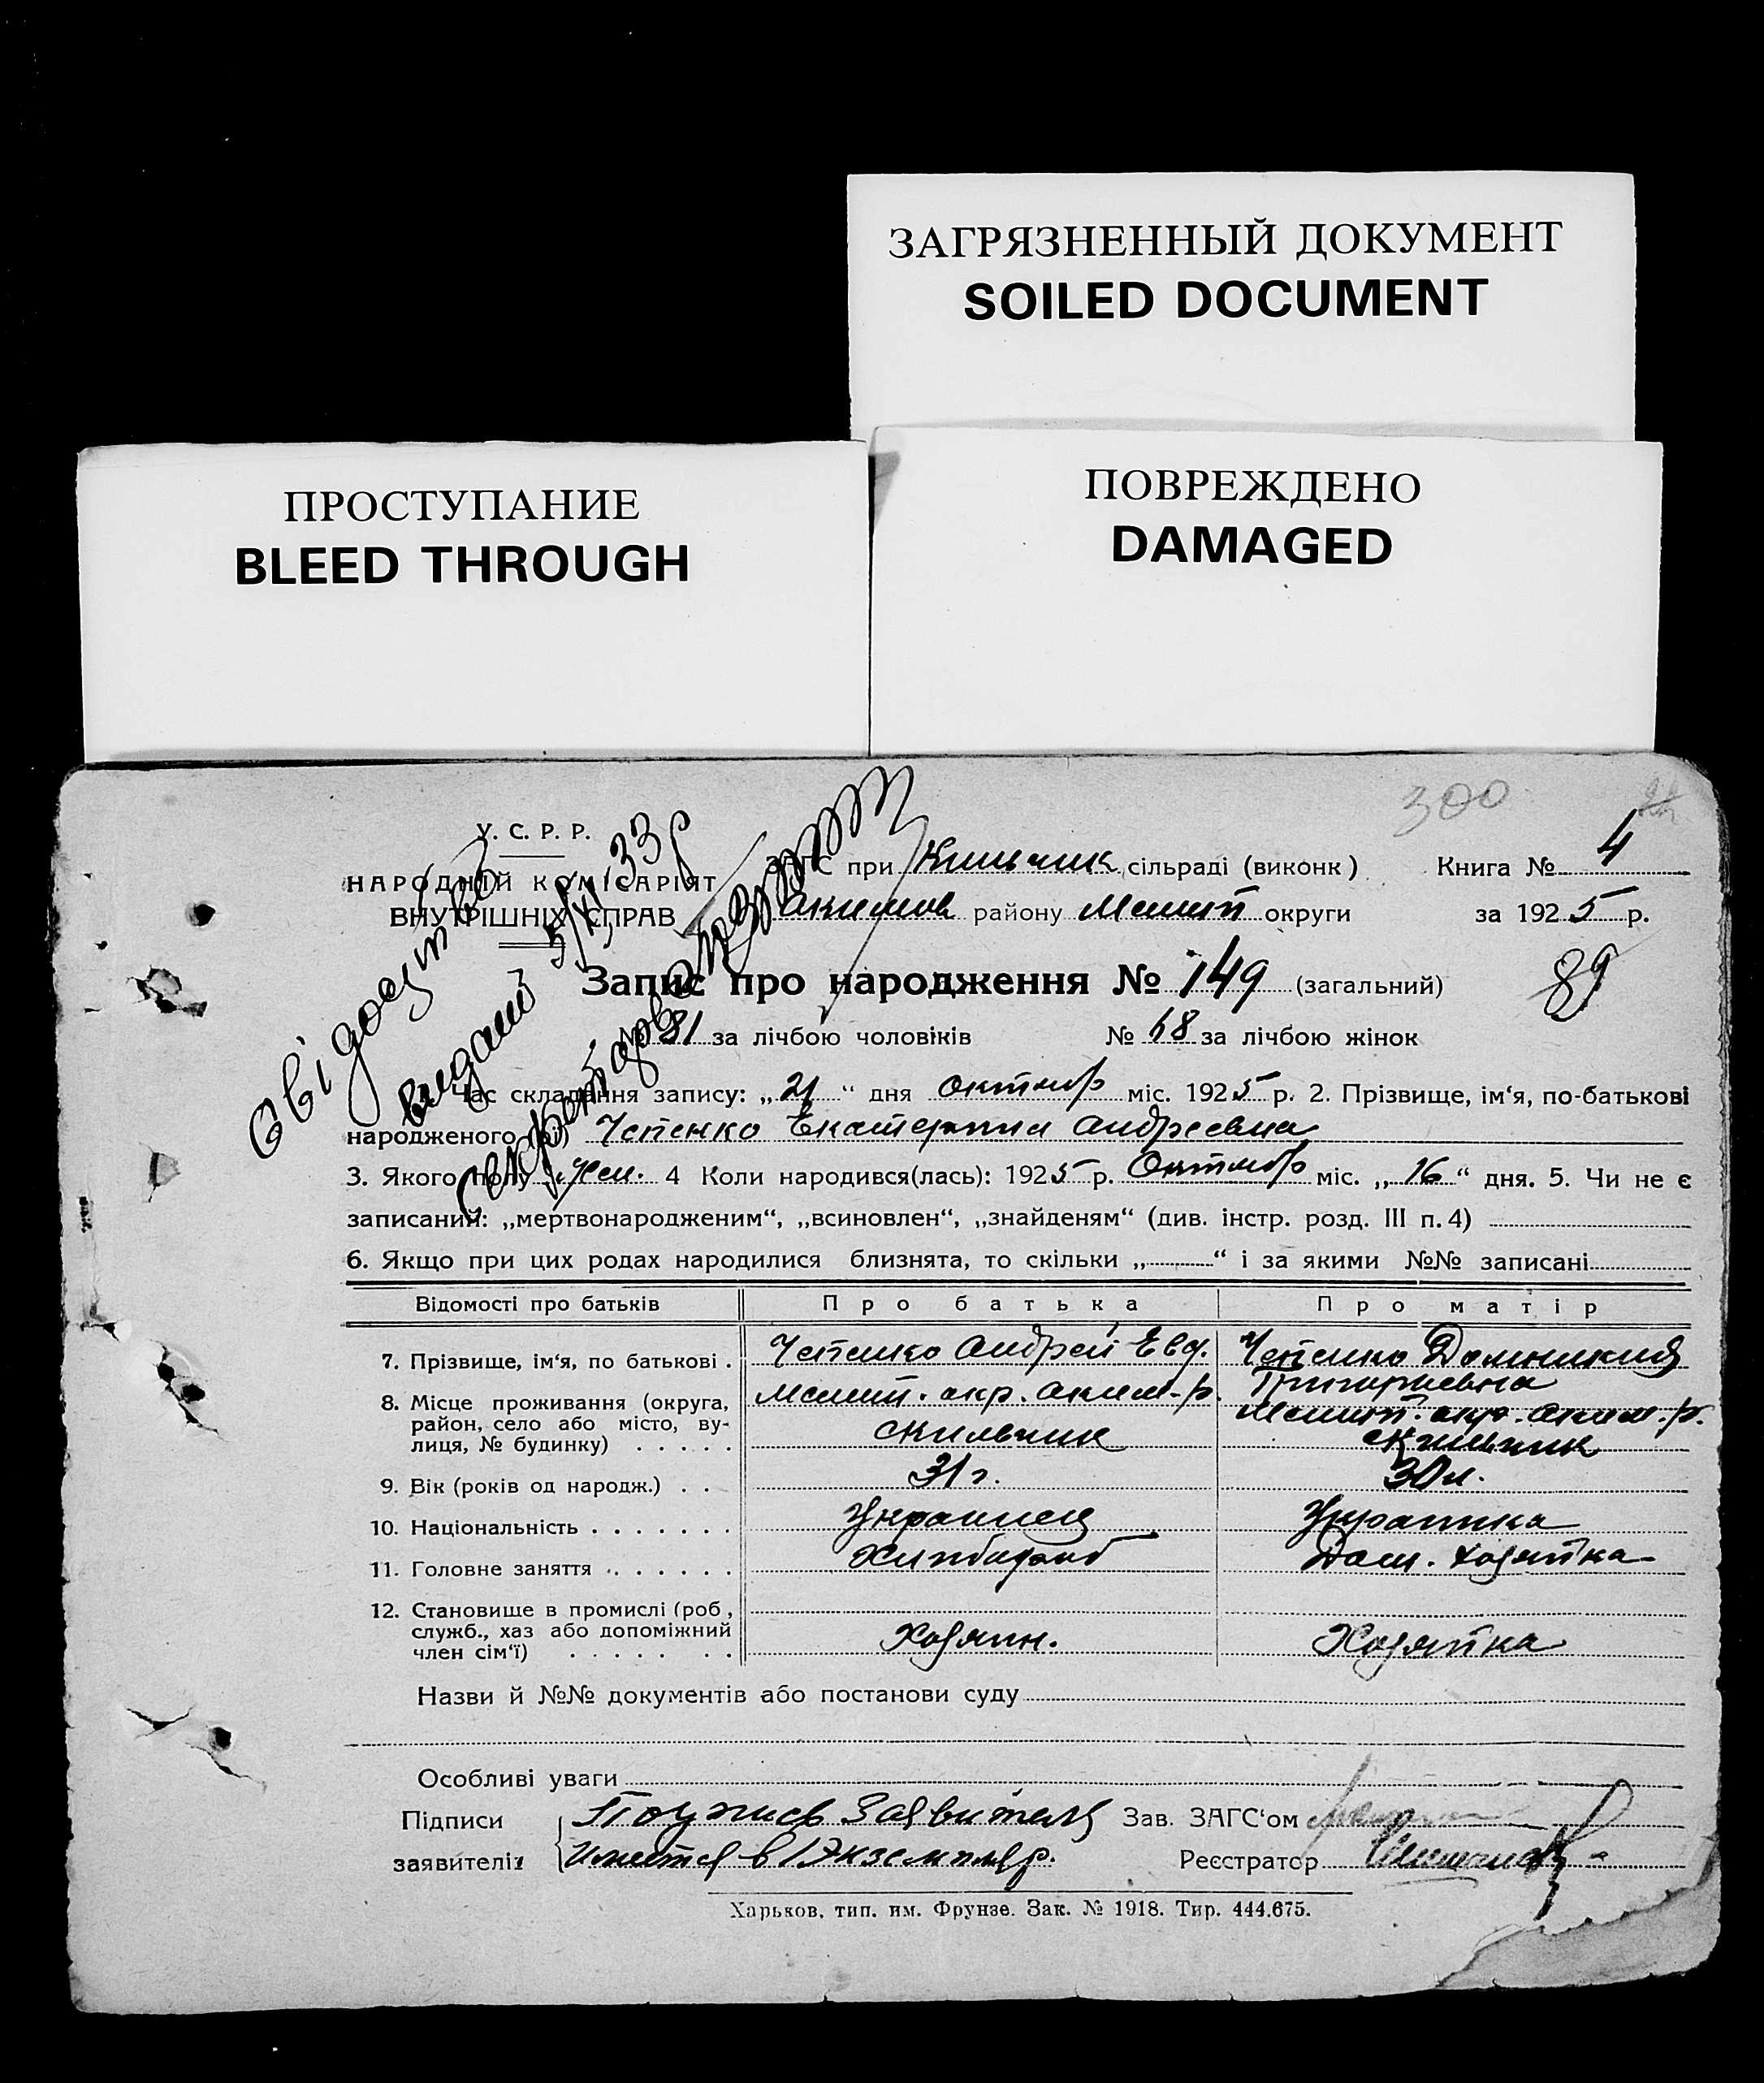 ЗАГРЯЗНЕННЫЙ ДОКУМЕНТ
SOILED DOCUMENT
ПРОСТУПАНИЕ
BLEED THROUGH
ПОВРЕЖДЕНО
DAMAGED
300
У. С. Р. Р.
НАРОДНІЙ КОМІСАРІЯТ
ВНУТРІШНІХ СПРАВ
свідоцтво
видано 5/XI 33 р
Секретарь
ЗАГС при Кильчик сільраді (виконк) Книга № 4
Акимов району Мелит округи за 1925 р.
Запис про народження № 149 (загальний)
89
№ 81 за лічбою чоловіків № 68 за лічбою жінок
Час складання запису: „21“ дня октябр міс. 1925 р. 2. Прізвище, ім‘я, по-батькові
народженого Чепенко Екатерина Андреевна
3. Якого полу жен. 4 Коли народився(лась): 1925 р. Октябр міс. „16“ дня. 5. Чи не є
записаний: „мертвонародженим“, „всиновлен“, „знайденям“ (див. інстр. розд. III п. 4)
6. Якщо при цих родах народилися близнята, то скільки „ “ і за якими №№ записані
Відомості про батьків Про батька Про матір
7. Прізвище, ім‘я, по батькові . Чепенко Андрей Евд. Чепенко Домникия
Григориевна
8. Місце проживання (округа, район, село або місто, вулиця, № будинку) Мелит. окр. Аким. р. Мелит. окр. Аким. р.
с Кильчик с Кильчик
9. Вік (років од народж.) . . 31 г. 30 л.
10. Національність . . . . . . . Украинец Украинка
11. Головне заняття . . . . . . Хлибороб Дом. хозяйка
12. Становище в промислі (роб, служб., хаз або допоміжний член сім‘ї) Хозяин. Хозяйка
Назви й №№ документів або постанови суду
Особливі уваги
Підписи Подпись Заявителя Зав. ЗАГС‘ом
заявителів Имеется в 1 Экземпляр. Реєстратор
Харьков. тип. им. Фрунзе. Зак. № 1918. Тир. 444.675.